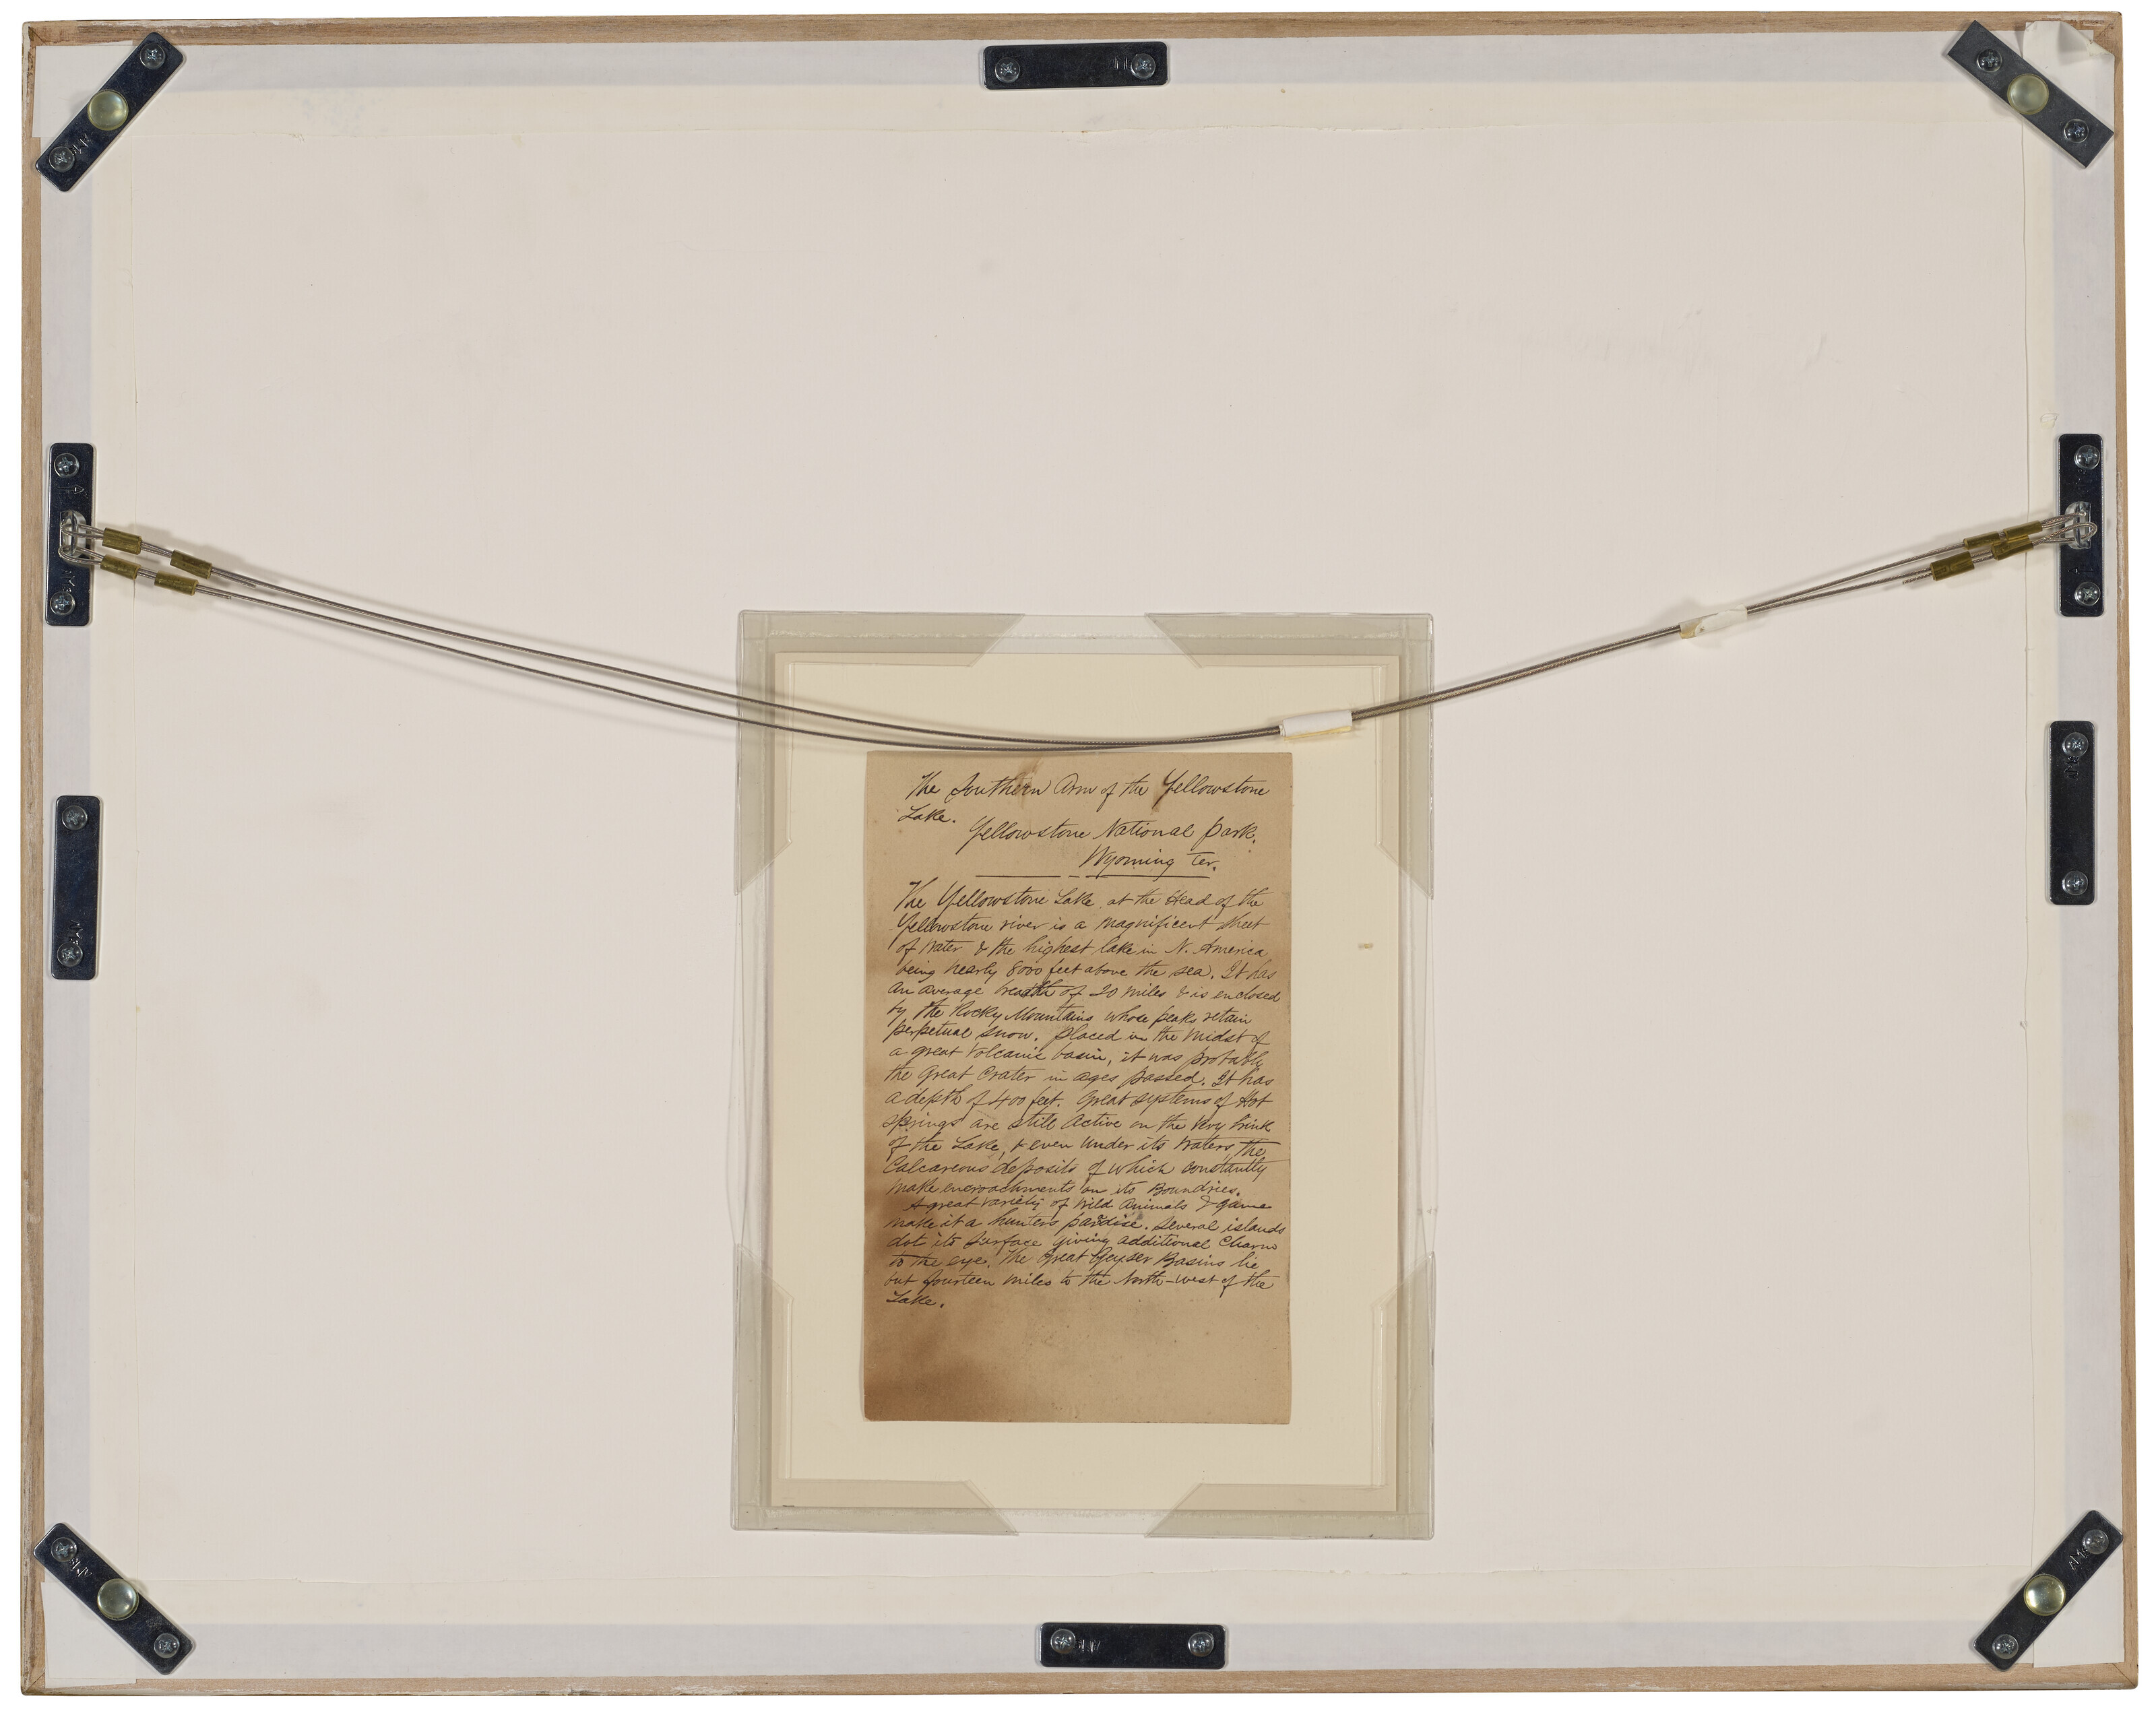 The Southern Arm of the Yellowstone
Lake.
Yellowstone National Park.
Wyoming Ter.
The Yellowstone Lake, at the Head of the
Yellowstone river is a magnificent sheet
of water & the highest lake in N. America
being nearly 8000 feet above the sea. It has
an average breadth of 20 miles & is enclosed
by the Rocky Mountains whose peaks retain
perpetual snow. placed in the midst of
a great Volcanic basin, it was probably
the Great Crater in ages passed. It has
a depth of 400 feet. Great systems of Hot
springs are still Active on the very brink
of the Lake, & even under its waters, the
Calcareous deposits of which constantly
make encroachments on its Boundries.
A great variety of Wild Animals & game
make it a hunters paradise. Several islands
dot its surface giving additional Charm
to the eye. The Great Geyser Basins lie
but fourteen miles to the North-west of the
Lake.